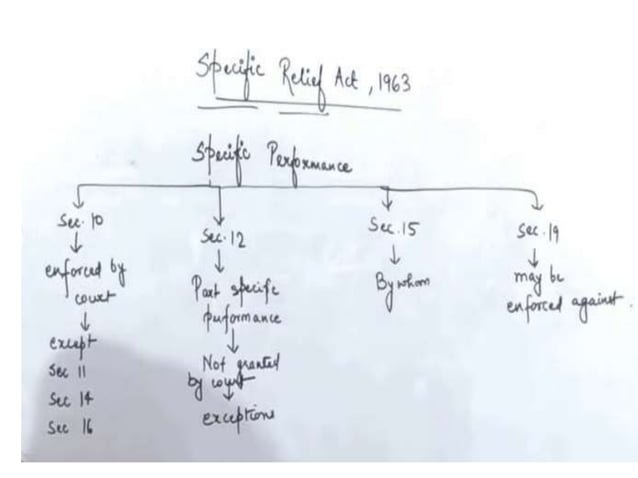 Specific Relief Act, 1963
Specific Performance
Sec. 10
enforced by
court
except
Sec 11
Sec 14
Sec 16
Sec. 12
Part specific
performance
Not granted
by court
exceptions
Sec. 15
By whom
Sec. 19
may be
enforced against.